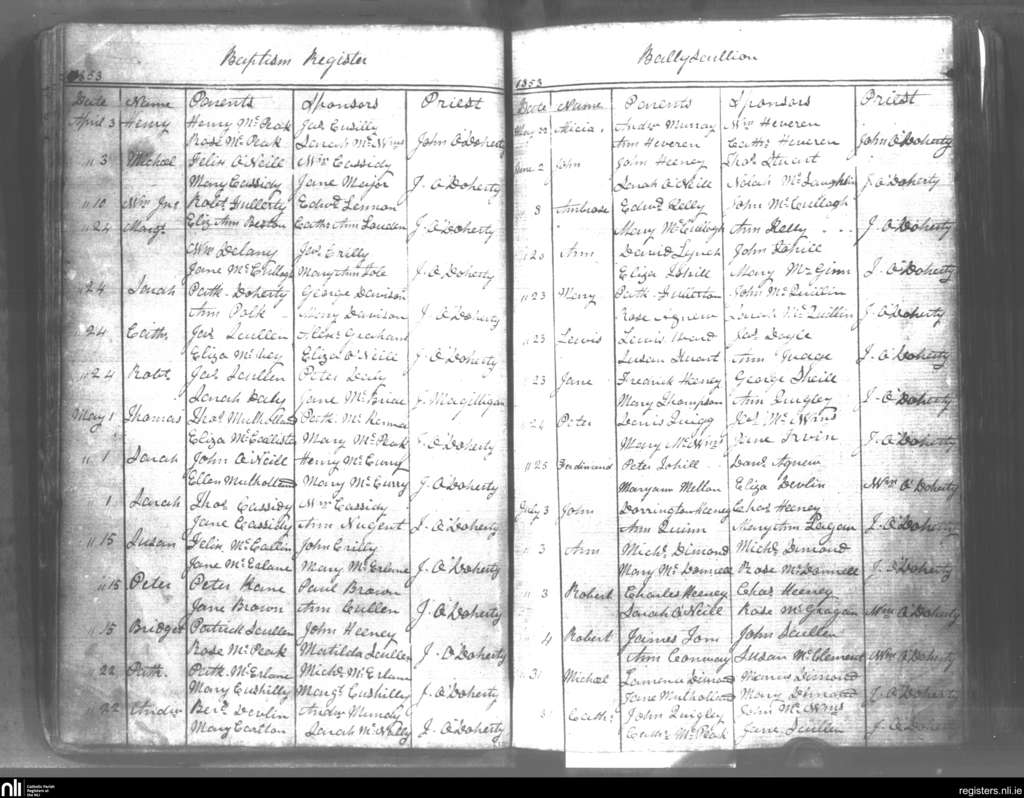 Baptism Register
1853
Date Name Parents Sponsors Priest
April 3 Henry Henry McPeak Jas. Cusilly
Rose McPeak Sarah McWms John O'Doherty
" 3 Michael Felix O'Neill Wm Cassidy
Mary Cassidy Jane Major J. O'Doherty
" 10 Wm Jas Robt Edwd Lennon
" 24 Margt Eliz Ann Beston Cathn Ann Louden J. O'Doherty
Wm Delany Jas. Crilly
Jane McCullagh Mary Ann J. O'Doherty
" 24 Sarah Patk. Doherty George Davison
Ann Polk Mary Davison J. O'Doherty
24 Cath. Jas. Scullen Alexr Graham
Eliza Eliza O'Neill J. O'Doherty
" 24 Robt Jas. Scullen Peter Daly
Sarah Jane McBriar J. Magilligan
May 1 Thomas Thos. Mulholland Patk. McKenna
Eliza McCallister Mary McPeak J. O'Doherty
" 1 Sarah John O'Neill Henry McCurry
Ellen Mulholland Mary McCurry J. O'Doherty
1 Sarah Thos. Cassidy Wm Cassidy
Jane Cassidy Ann Nugent J. O'Doherty
" 15 Susan Felix McCallin John Crilly
Jane McErlane Mary McErlane J. O'Doherty
" 15 Peter Peter Kane Paul Brown
Jane Brown Ann Cullen J. O'Doherty
" 15 Bridget Patrick Scullen John Heeney
Rose McPeak Matilda Scullen J. O'Doherty
" 22 Patk. Patk. McErlane Michl. McErlane
Mary Cushilly Margt. Cushilly J. O'Doherty
" 22 Andw Berd. Devlin Andw Mundy
Mary Carlton Sarah McNally J. O'Doherty
Ballyscullion
1853
Date Name Parents Sponsors Priest
May 22 Alicia Andw Murray Wm Heveren
Ann Heveren Cathe. Heveren John O'Doherty
June 2 John John Heeney Thos. Stuart
Sarah O'Neill McLaughlin J. O'Doherty
8 Ambrose Edwd Kelly John McCullagh
Mary McCullogh Ann Kelly J. O'Doherty
" 20 Ann David Lynch John Tohill
Eliza Tohill Mary McGinn J. O'Doherty
" 23 Mary Patk. John McQuillin
Rose Agnew Sarah McQuillin J. O'Doherty
" 23 Lewis Lewis Ward Jas. Doyle
Susan Stuart Ann Judge J. O'Doherty
23 Jane Fredrick Heeney George Sheill
Mary Thompson Ann Quigley J. O'Doherty
" 24 Peter Denis Quigg Jas. McWms
Mary McWms Jane Irvin J. O'Doherty
" 25 Ferdinand Peter Tohill Danl. Agnew
Maryann Mellon Eliza Devlin Wm O'Doherty
July 3 John Dorrington Heeney Chas Heeney
Ann Quinn Mary Ann Pagan J. O'Doherty
" 3 Ann Michl. Dimond Michl. Dimond
Mary McDonnell Rose McDonnell J. O'Doherty
" 3 Robert Charles Heeney Chas Heeney
Sarah O'Neill Rose McGragan Wm O'Doherty
4 Robert James Tom John Scullen
Ann Conway Susan McClement Wm O'Doherty
" 31 Michael Laurence Dimond Dimond
Jane Mulholland Mary Dimond J. O'Doherty
31 Cath. John Quigley John McWms
Cathe McPeak Jane Scullen J. O'Doherty
nli Catholic Parish Registers at the NLI
registers.nli.ie